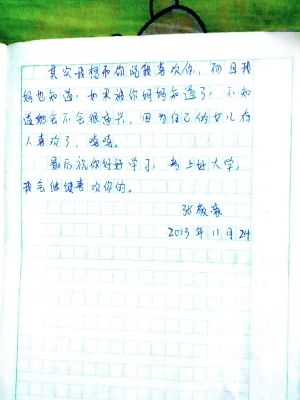 其实我想和你说我喜欢你，而且我
妈也知道，如果被你妈妈知道了，不知
道她会不会很高兴，因为自己的女儿有
人喜欢了，嘻嘻。
最后祝你好好学习，考上好大学，
我会继续喜欢你的。
张敬
2013年11月24